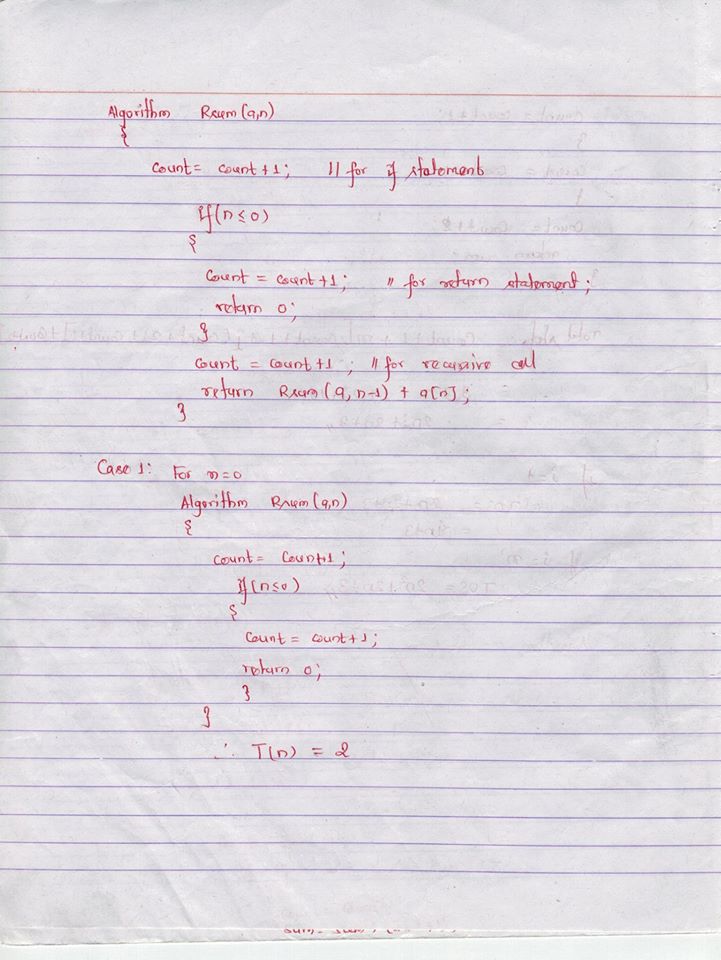 Algorithm Rsum(a,n)
{
count = count+1; // for if statement
if(n≤0)
{
count = count+1; // for return statement;
return 0;
}
count = count+1; // for recursive call
return Rsum(a,n-1) + a[n];
}
Case 1: For n=0
Algorithm Rsum(a,n)
{
count = count+1;
if(n≤0)
{
count = count+1;
return 0;
}
}
∴ T(n) = 2